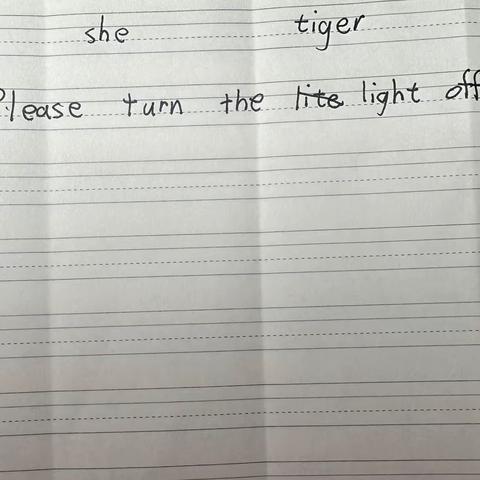 she tiger
Please turn the lite light off